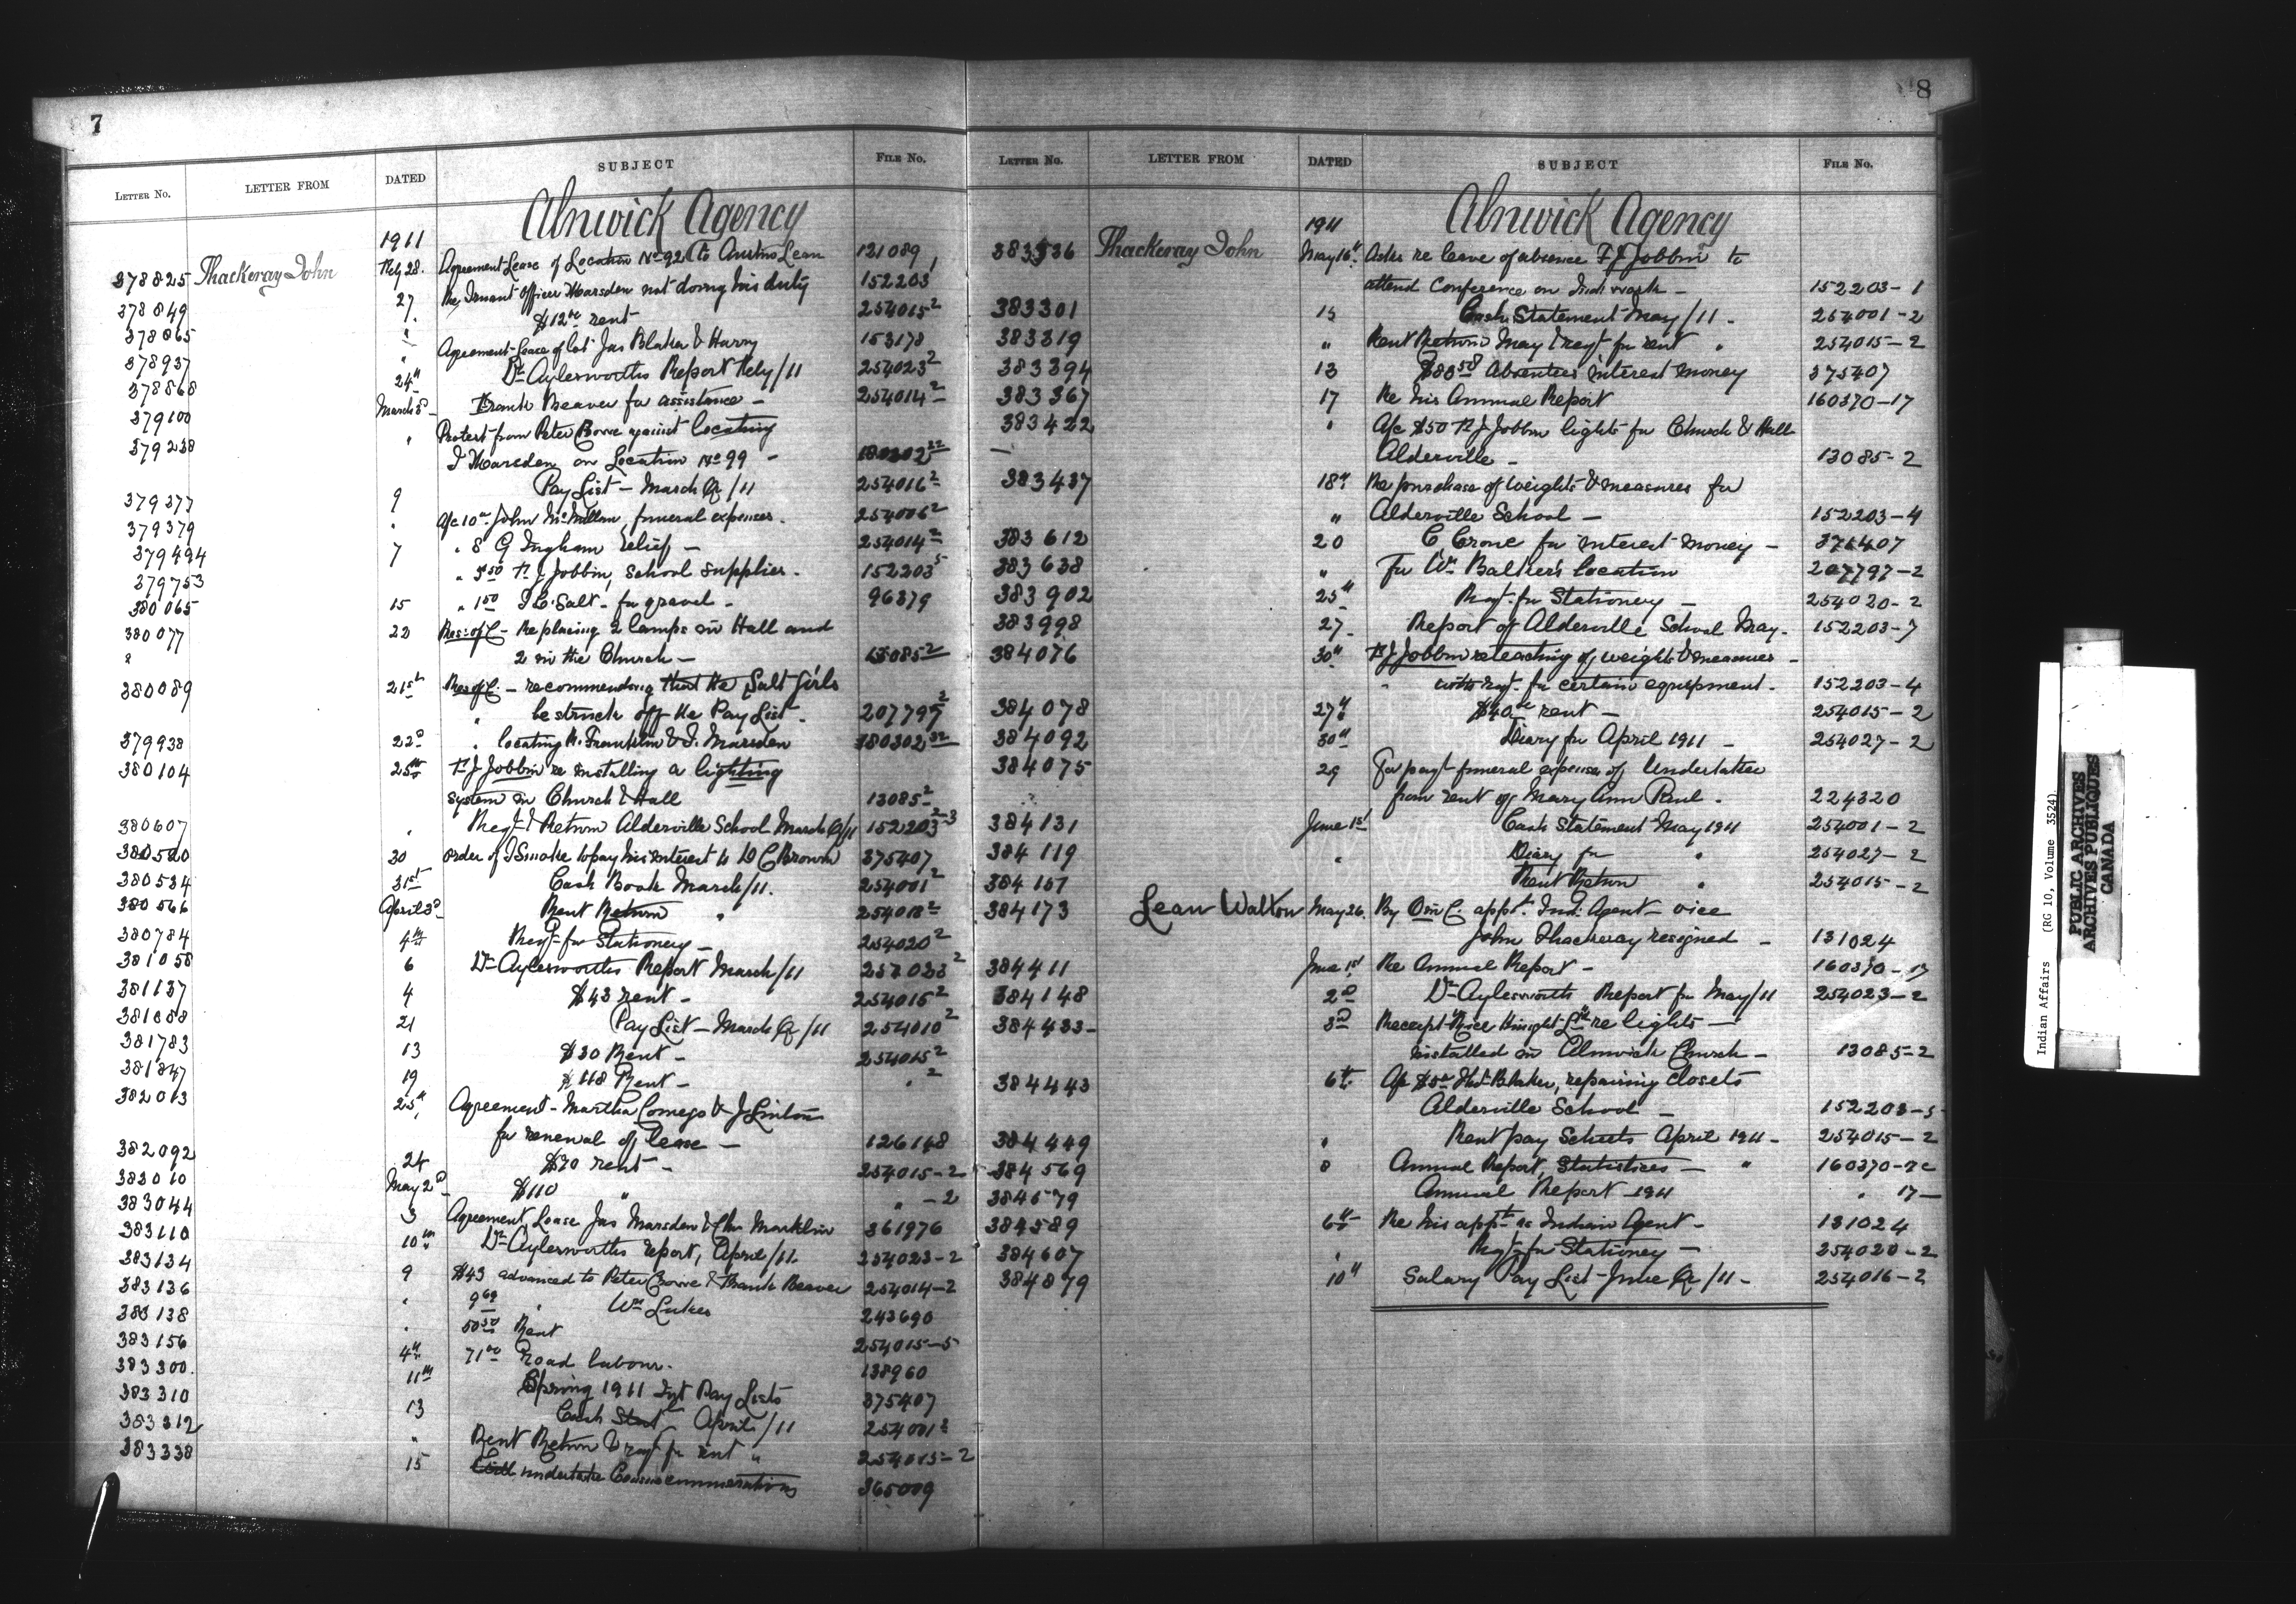 7
LETTER No. LETTER FROM DATED SUBJECT FILE No.
Alnwick Agency
1911
378825 Thackeray John Feby 28. Agreement Lease of Location No 92 to Austin Lean 121089
378849 27 Re Truant Officer Marsden not doing his duty 152203
378865 " $12 00 rent 254015-2
378937 " Agreement-Lease of lot Jas Blaker & Harry 153178
378868 24" Dr Aylesworths Report Feby/11 254023-2
379100 March 3d Frank Beaver for assistance - 254014-2
379238 " Protest from Peter Crowe against locating
J Marsden on Location No 99 - 180302
379377 9 Pay List - March Qr/11 254016-2
379379 " a/c 10 00 John McMillan, funeral expenses. 254006-2
379494 7 " 8 G Ingham relief - 254014-2
379753 " 5 50 F. J Jobbin, School supplies. 152203-5
380065 15 " 1 50 J. C. Salt - for gravel - 96379
380077 22 Res: of C - Replacing 2 lamps in Hall and
" 2 in the Church - 13085-2
380089 21st Res of C. - recommending that the Salt girls
" be struck off the Pay List. 207797-2
379938 22d " locating H. Franklin & J. Marsden 180302-32
380104 25th F. J Jobbin re installing a lighting
system in Church & Hall 13085-2
380607 " Reqt & Return Alderville School March Qr/11 152203-2-3
380520 30 Order of J Smoke to pay his interest to D C Brown 375407
380534 31st Cash Book March/11. 254001-2
380566 April 3d Rent Return " 254018-2
380784 4th Reqt for Stationery - 254020-2
381058 6 Dr Aylesworths Report March/11 254023-2
381137 4 $43 rent - 254015-2
381688 21 Pay List - March Qr/11 254010-2
381783 13 $30 Rent - 254015-2
381847 19 $118 Rent - " 2
382013 25th Agreement - Martha Comego & J Linton
for renewal of lease - 126148
382092 24 $70 rent - 254015-2
382010 May 2d $110 " " - 2
383044 3 Agreement, Lease Jas Marsden & Chas Macklin 361976
383110 10th Dr Aylesworths report, April/11. 254023-2
383134 9 $43 advanced to Peter Crowe & Frank Beaver 254014-2
383136 " 9 69 " Wm Lukes 243690
383138 " 50 50 Rent 254015-5
383156 4th 71 00 Road labour. 138960
383300. 11th Spring 1911 Int Pay Lists 375407
383310 13 Cash Stat April/11 254001-2
383312 " Rent Return & reqt for rent " 254015-2
383338 15 Will undertake Census enumerations 365009
8
LETTER No. LETTER FROM DATED SUBJECT FILE No.
Alnwick Agency
1911
383336 Thackeray John May 16" Asks re leave of absence F J Jobbin to
attend Conference on Ind. work - 152203-1
383301 15 Cash Statement May/11 - 254001-2
383319 " Rent Return May & reqt for rent " 254015-2
383394 13 $80 58 Absentees interest money 375407
383367 17 Re his Annual Report 160370-17
383422 " A/c $50 F. J Jobbin lights for Church & Hall
Alderville - 13085-2
383437 18" Re purchase of weights & measures for
" Alderville School - 152203-4
383612 20 C Crowe for interest money - 375407
383638 " For Wm Balker's location 207797-2
383902 25" Reqt for Stationery - 254020-2
383998 27 Report of Alderville School May - 152203-7
384076 30" F. J Jobbin re teaching of weights & measures -
with reqt. for certain equipment. 152203-4
384078 27" $40 00 rent - 254015-2
384092 30" Diary for April 1911 - 254027-2
384075 29 For payt funeral expenses of Undertaker
from rent of Mary Ann Paul. 224320
384131 June 1st Cash Statement May 1911 254001-2
384119 " Diary for " 254027-2
384157 Rent Return " 254015-2
384173 Lean Walton May 26. By O in C. appt. Ind: Agent - vice
John Thackeray resigned - 131024
384411 June 1st Re Annual Report - 160370-17
384148 2d Dr Aylesworth Report for May/11 254023-2
384433- 3d Receipt Rice Knight Ltd re lights -
installed in Alnwick Church - 13085-2
384443 6th A/c $5 00 Hat Blaker, repairing closets
Alderville School - 152203-5
384449 " Rent pay Sheets April 1911 - 254015-2
384569 8 Annual Report, Statistics - " 160370-
384579 Annual Report 1911 " 17-
384589 6th Re his appt as Indian Agent - 131024
384607 " Reqt for Stationey - 254020-2
384879 10" Salary Pay List - June Qr/11 - 254016-2
Indian Affairs (RG 10, Volume 3524)
PUBLIC ARCHIVES
ARCHIVES PUBLIQUES
CANADA